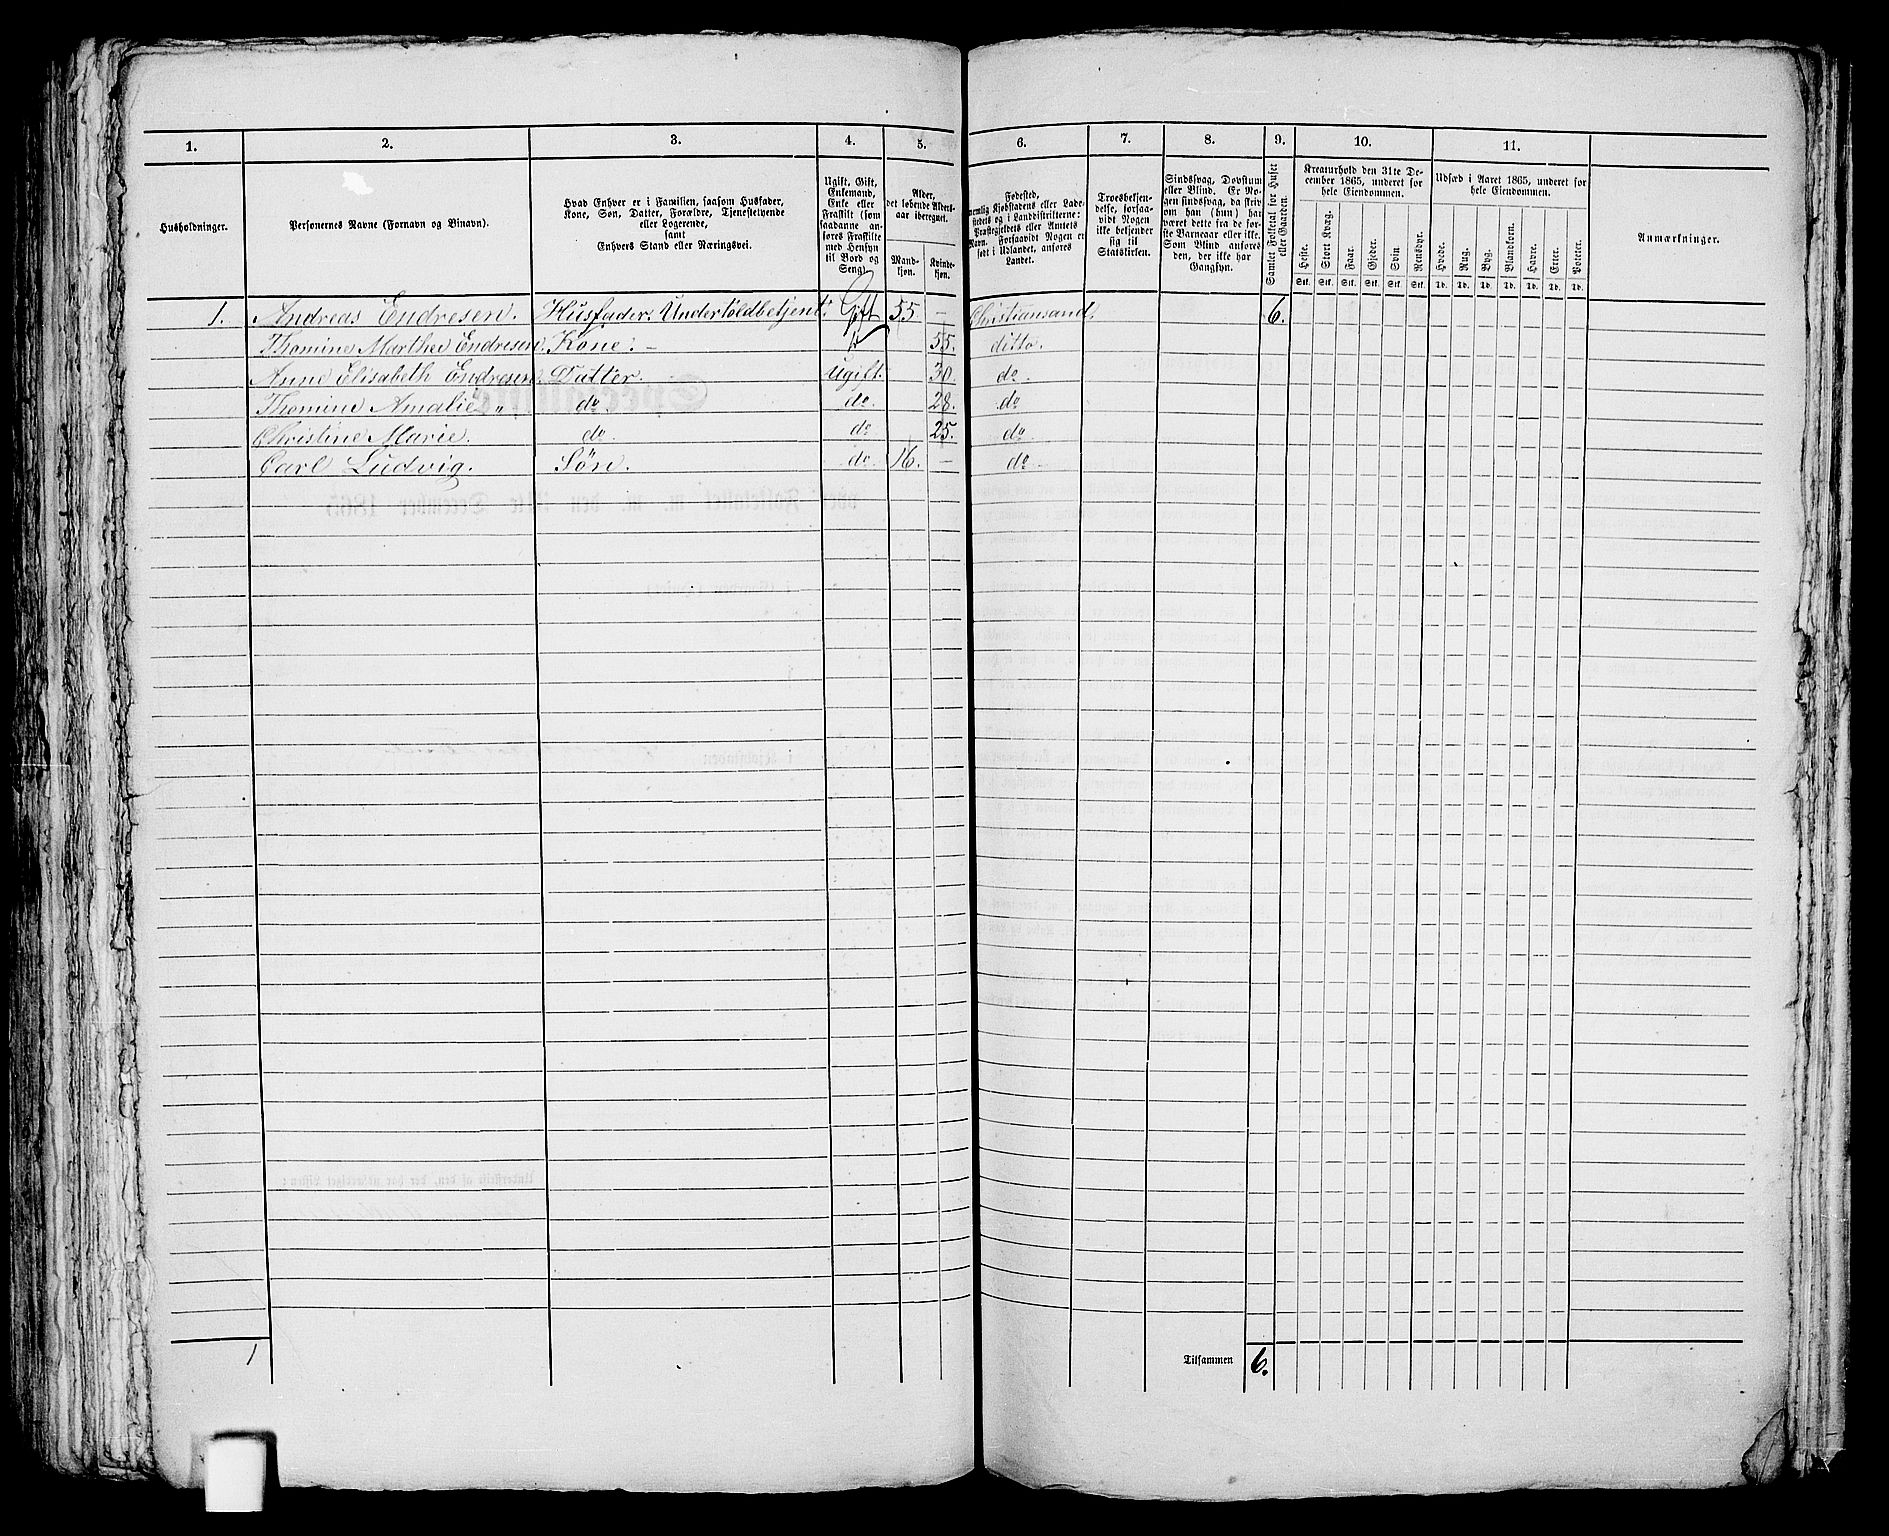 1. 2. 3. 4. 5. 6. 7. 8. 9. 10. 11.
Husholdninger.
Personernes Navne (Fornavn og Binavn).
Hvad Enhver er i Familien, saasom Husfader,
Kone, Søn, Datter, Forældre, Tjenestetyende
eller Logerende,
samt
Enhvers Stand eller Næringsvei.
Ugift, Gift,
Enkemand,
Enke eller
Fraskilt (som
saadanne an-
føres Fraskilte
med Hensyn
til Bord og
Seng).
Alder,
det løbende Alders-
aar iberegnet.
Mand-
kjøn.
Kvinde-
kjøn.
Fødested,
nemlig Kjøbstadens eller Lade-
stedets og i Landdistrikterne:
Præstegjeldets eller Amtets
Navn. Forsaavidt Nogen er
født i Udlandet, anføres
Landet.
Troesbekjen-
delse, forsaa-
vidt Nogen
ikke bekjender
sig til
Statskirken.
Sindssvag, Døvstum
eller Blind. Er No-
gen sindssvag, da skriv
om han (hun) har
været dette fra de før-
ste Barneaar eller ikke.
Som Blind anføres
den, der ikke har
Gangsyn.
Samlet Folketal for Huset
eller Gaarden.
Kreaturhold den 31te De-
cember 1865, underet for
hele Eiendommen.
Heste. Stort Kvæg. Faar. Gjeder. Svin. Rensdyr.
Stk. Stk. Stk. Stk. Stk. Stk.
Udsæd i Aaret 1865, underet for
hele Eiendommen.
Hvede. Rug. Byg. Blandkorn. Havre. Erter. Poteter.
Td. Td. Td. Td. Td. Td. Td.
Anmærkninger.
1. Andreas Endresen. Husfader. Undertoldbetjent. Gift 55 — Christiansand. 6.
Thomine Marthea Endresen. Kone. — 55. ditto.
Anne Elisabeth Endresen. Datter. Ugift. 30. do.
Thomine Amalie " do do. 28. do
Christine Marie. do. do 25. do.
Carl Ludvig. Søn. do. 16. — do.
1 Tilsammen 6.